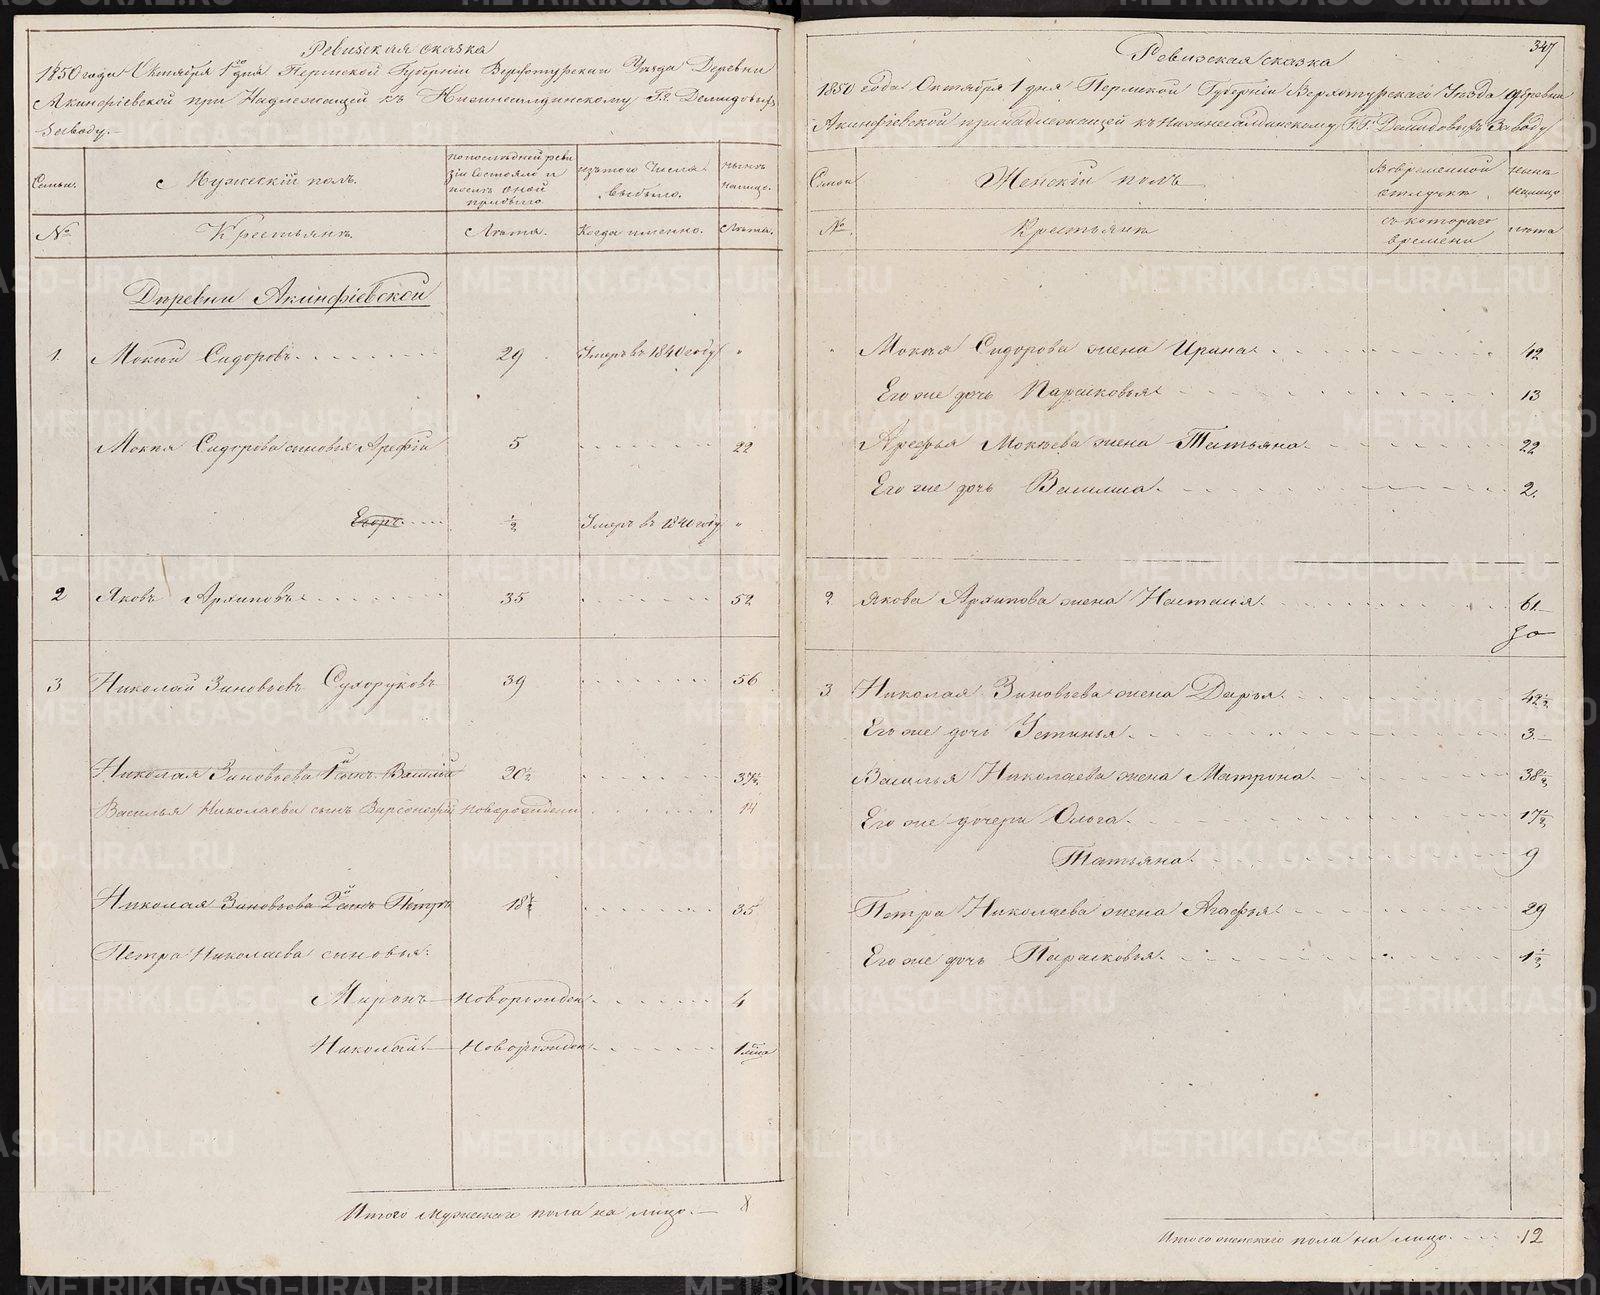 Ревизская сказка
1850 года Октября 1го дня Пермской Губерніи Верхотурскаго Уезда Деревни
Акинфіевской при Надлежащей къ Нижнесалдинскому Гг. Демидовыхъ
Заводу.
Семьи.
Мужескій полъ.
по последней реви
зіи Состояло и
после оной
прибыло
изъ того Числа
выбыло.
ныне
налицо.
№
Крестьяне.
Лета.
Когда именно.
Лета.
Деревни Акинфіевской
1. Мокій Сидоровъ 29 Умеръ въ 1840 году "
Мокія Сидорова сыновья Арефій 5 22
Егоръ 1/2 Умеръ въ 1840 году "
2 Яковъ Архиповъ 35 52
3 Николай Зиновьевъ Сухоруковъ 39 56
Николая Зиновьева 1й сынъ Василій 20 1/2 37 1/2
Василья Николаева сынъ Варсонофій новорожденъ 14
Николая Зиновьева 2й сынъ Петръ 18 1/2 35
Петра Николаева сыновья:
Миронъ новорожден 4
Николай новорожден 1 меца
Итого Мужескаго пола на лицо. 8
347
Ревизская сказка
1850 года Октября 1 дня Пермской Губерніи Верхотурскаго Уезда деревни
Акинфіевской принадлежащей къ Нижнесалдинскому Г.Г. Демидовыхъ Заводу
Семьи
Женскій полъ
Во временной
отлучке
ныне
налицо
№.
Крестьяне
съ котораго
времени
лета
" Мокія Сидорова жена Ирина. 42
Его же дочь Парасковья 13
Арефья Мокеева жена Татьяна 22
Его же дочь Василиса. 2.
2 Якова Архипова жена Настасья 61
3 Николая Зиновьева жена Дарья. 42 1/2
Его же дочь Устинья 3
Василья Николаева жена Матрона 38 1/2
Его же дочери Ольга. 17 1/2
Татьяна. 9
Петра Николаева жена Агафья 29
Его же дочь Парасковья. 1 1/2
Итого женскаго пола на лицо 12
METRIKI.GASO-URAL.RU